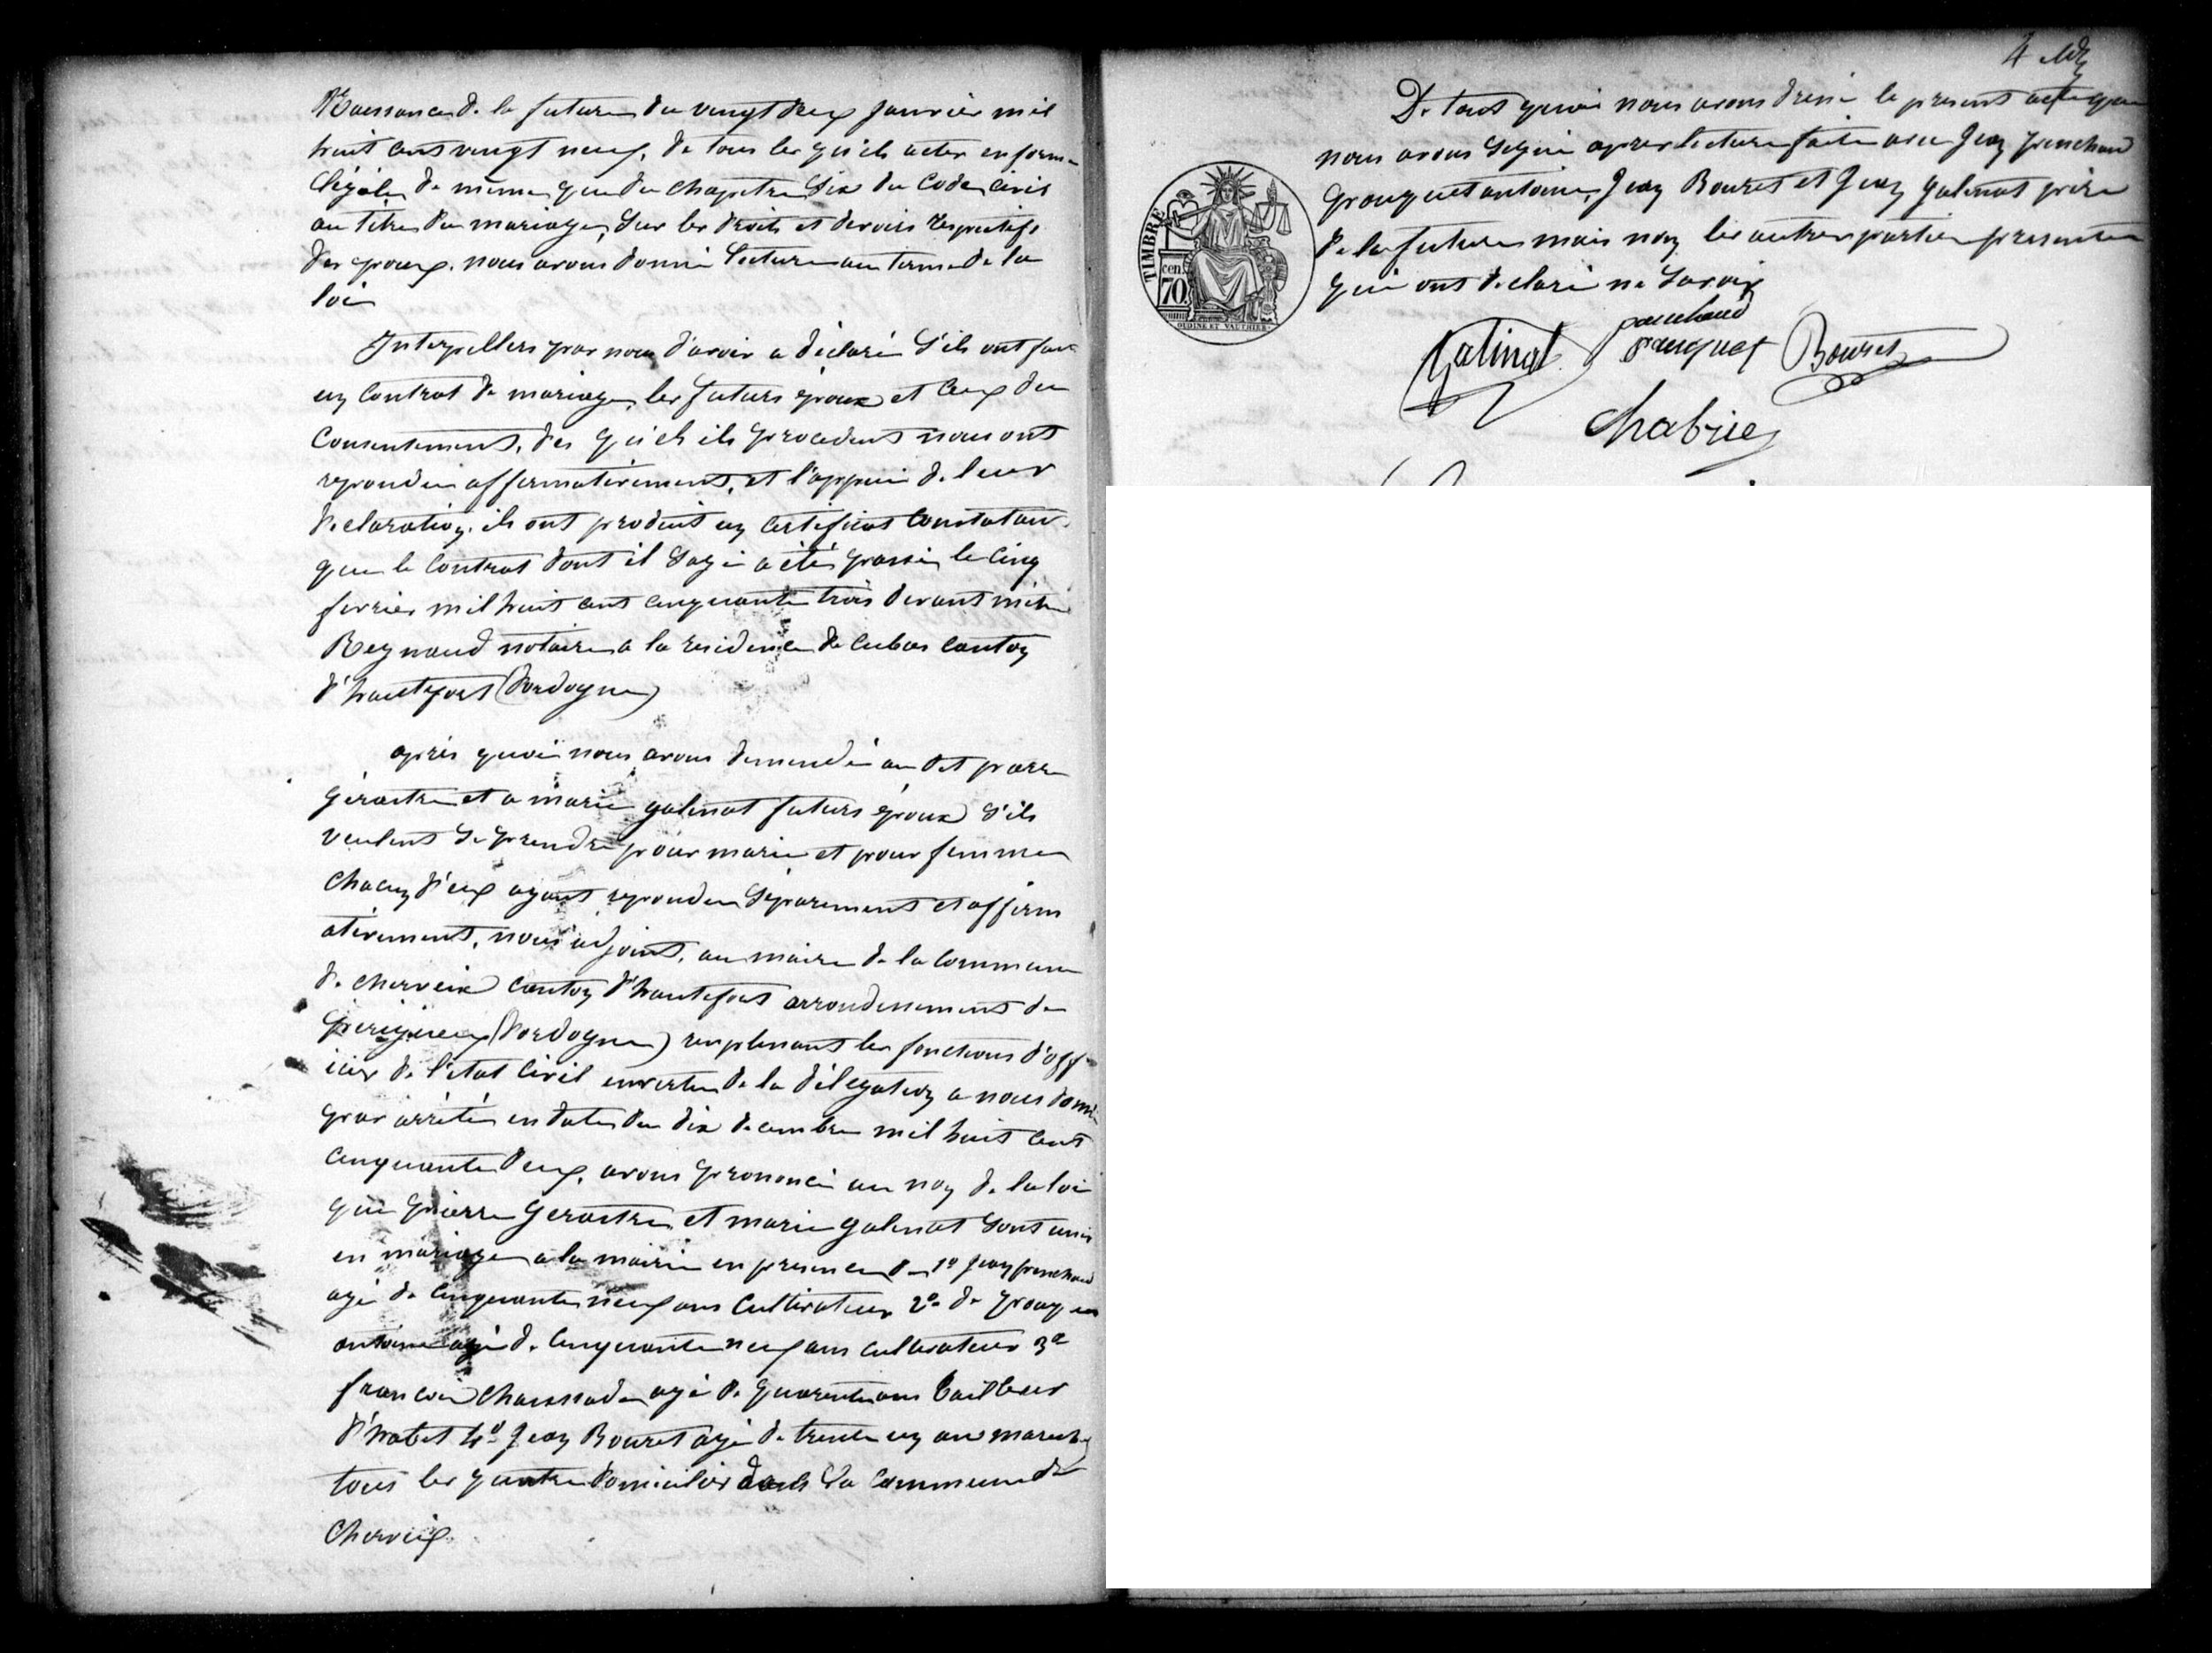 Naissance de la future du vingt deux janvier mil
huit cent vingt neuf, de tous les quels actes en forme
légale de meme que du chapitre Six du Code civil
au titre du mariage, Sur les droits et devoirs respectifs
des epoux. nous avons donné lecture au terme de la
loi
Interpellers par nous d'avoir a déclaré S'ils ont fait
un Contrat de mariage, les futurs époux et ceux du
Consentement, des quels ils procedent nous ont
repondu affirmativement, et l'appui de leur
declaration, ils ont produit un certificat Constatant
que le Contrat dont il Sagi a été passé le Cinq
fevrier mil huit cent cinquante trois devant maitre
Reynaud notaire a la residence de Cubas Canton
d'hautefort (Dordogne)
après quoi nous avons demendé au dit pierre
gérastre et a marie galinat futurs époux S'ils
veulent Se prendre pour marie et pour femme
Chacun d'eux ayant repondu Séparement et affirm
ativement, nous adjoint, au maire de la Commune
de cherveix Canton d'hautefort arrondissement de
périgueux (Dordogne) remplissant les fonctions d'offi
icier de l'etat Civil en vertu de la délégation a nous donné
par arrêté en date du dix decembre mil huit cent
cinquante deux, avons prononcé au nom de la loi
que pierre Gerastre et marie galinat Sont unis
en mariage a la mairie en presence de 1º Jean
agé de cinquante neuf ans Cultivateur 2º de
antoine agé de cinquante neuf ans cultivateur 3º
francois Chaussade agé de quarente ans tailleur
d'habit 4º Jean Bouret agé de trente un ans
tous les quatre domiciliés dans la commune de
Cherveix
4
De tout quoi nous avons dressé le present acte que
nous avons Signé apres lecture faite avec Jean
antoine, Jean Bouret et Jean galinat père
de la future mais non les autres parties presentes
qui ont declaré ne Savoir
TIMBRE
70
cen.
OUDINÉ ET VAUTHIER
Galinat
Bouret
Chabrie